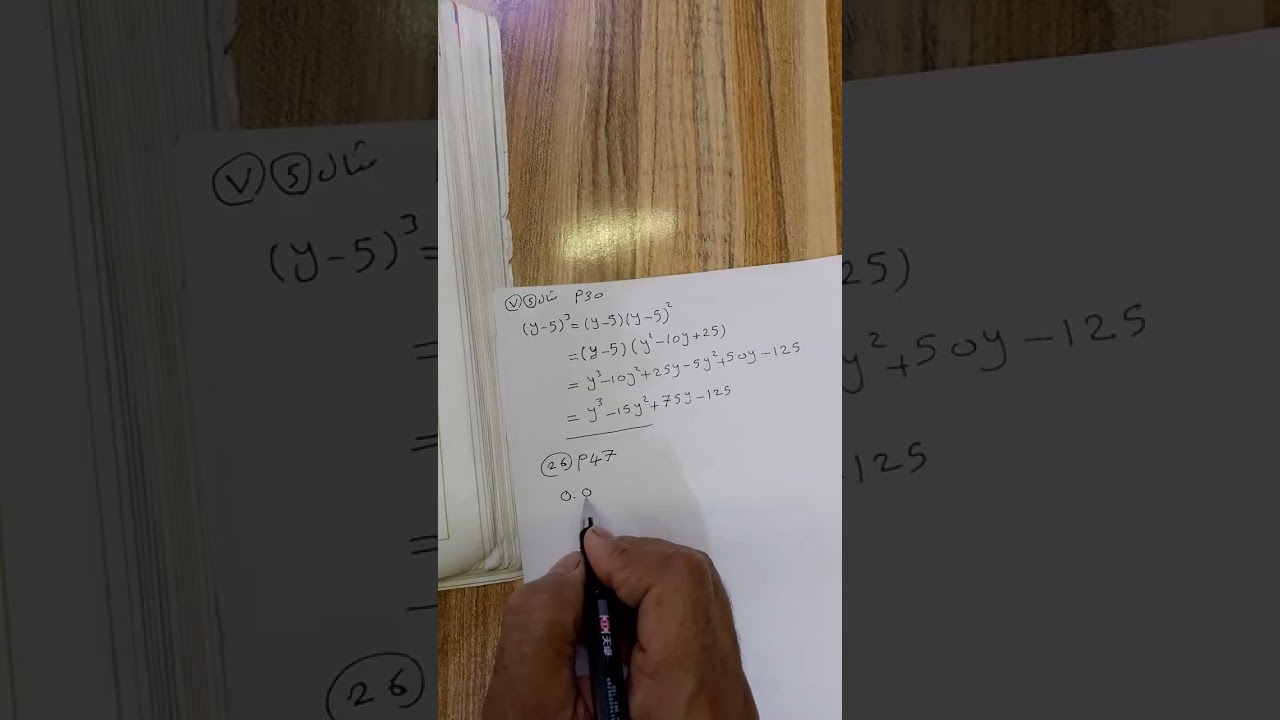 Ⓥ ⑤ مثال P30
(y-5)³ = (y-5)(y-5)²
= (y-5)(y²-10y+25)
= y³-10y²+25y-5y²+50y-125
= y³-15y²+75y-125
㉖ P47
0.0